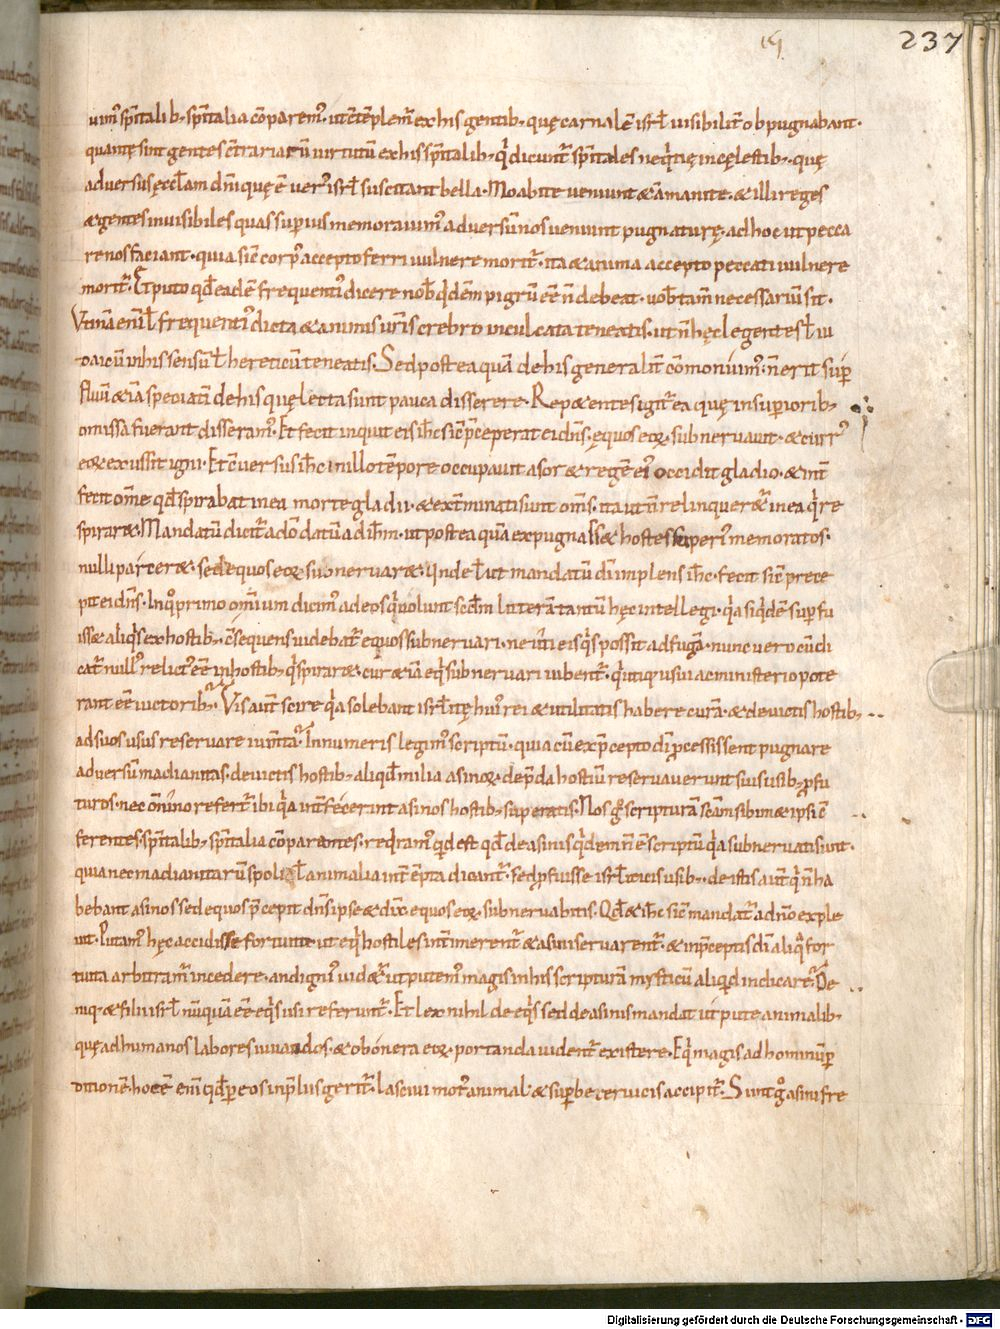 237
uim᷒ sp̄italib; sp̄italia cōparem᷒· ut c̄tēplem̄ ex his gentib; quę carnalē isrl̄ uisibilit̄ obpugnabant·
quantę sint gentes c̄trariarū uirtutū ex his sp̄italib; q̄ dicunt̄ sp̄itales neq̄tię in cęlestib;· quę
aduersus ęccl̄am dn̄i quę ē uer᷒ isrl̄ suscitant bella· Moabitę ueniunt & āmanitę· & illi reges
& gentes inuisibiles quas superius memorauim᷒ aduersū nos ueniunt pugnaturę· ad hoc ut pecca
re nos faciant· quia sic̄ corp᷒ accepto ferri uulnere morit̄· ita & anima accepto peccati uulnere
morit̄· Et puto qd̄ eadē frequenti᷒ dicere nob̄ q̄dem pigrū ēē n̄ debeat· uob̄ tam̄ necessariū sit·
Vtinā eni l̄ frequenti᷒ dicta & animis ur̄is crebro inculcata teneatis· ut n̄ hęc legentes l̄ iu
daicū in his sensū l̄ hereticū teneatis· Sed postea quā de his generalit̄ cōmonuim᷒· n̄ erit sup̄
fluū & iā speciatī de his quę lecta sunt pauca disserere· Rep&entes igit̄ ea quę in superiorib;
omissa fuerant disseram᷒· Et fecit inquit eis ih̄c sic̄ p̄ceperat ei dn̄s· ęquos eoꝝ· subneruauit· & curr᷒
eoꝝ exussit igni· Et c̄uersus ih̄c in illo tēpore occupauit asor & regē ei᷒ occidit gladio· & int̄
fecit om̄e qd̄ spirabat in ea morte gladii· & ext̄minati sunt om̄s· ita ut n̄ relinqueret̄ in ea q̄ re
spirar&· Mandatū dicit̄ a dn̄o datū ad ih̄m· ut postea quā expugnass& hostes superi᷒ memoratos·
nulli parcer&· sed equos eoꝝ subneruar&· Unde l̄ ut mandatū dn̄i implens ih̄c· fecit sic̄ prece
pit ei dn̄s· Inq̄ primo om̄ium dicim᷒ ad eos q̄ uolunt scdm̄ litterā tantū hęc intellegi· q̄a siq̄dē sup̄fu
iss& aliq̄s ex hostib; c̄sequens uidebat̄ equos subneruari· ne īniti eis q̄s possit ad fugā· nunc uero cū di
cat̄ null᷒ relict᷒ ēē in hostib; q̄ spirar&· cur & iā eq̄ subneruari iubent̄· q̄ utiq; usui ac ministerio pote
rant ēē uictorib;· Vis aut̄ scire q̄a solebant isrl̄itę hui᷒ rei & utilitatis habere curā· & deuictis hostib;
ad suos usus reseruare iumta· In numeris legim᷒ scriptū· quia cū ex p̄cepto dī p̄cessissent pugnare
aduersū madianitas· deuictis hostib; aliq̄d milia asinoꝝ· de p̄da hostiū reseruauerunt suis usib; p̄fu
turos· nec om̄ino refert̄ ibi q̄a int̄fecerint asinos hostib; superatis· Nos g̊ scripturā sc̄am sibim& ipsi c̄
ferentes· sp̄italib; sp̄italia cōparantes· req̄ram᷒ quid est qd̄ de asinis q̄dem n̄ ē scriptū q̄a subneruati sunt·
quia nec madianitarū spolia l̄ animalia int̄ēpta dicant̄· sed p̄fuisse isrl̄iticis usib;· de istis aut̄ q̄ n̄ ha
bebant asinos sed equos p̄cepit dn̄s ipse & dix̄· equos eoꝝ· subneruabitis· Qd̄ & ih̄c sic̄ mandat̄ a dn̄o exple
uit· Putam᷒ hęc accidisse fortuitu ut eq̄ hostiles int̄imerent̄ & asini seruarent̄· & in p̄ceptis dī aliq̄ for
tuita arbitram̄ incedere· an dign᷒ uidet̄ ut putem᷒ magis in his scripturā mysticū aliqd indicare· De
niq; & filii isrl̄ nūquā ēē eq̄s usi referunt̄· Et lex nihil de eq̄s sed de asinis mandat ut pute animalib;
quę ad humanos labores iuuandos· & ob onera eoꝝ· portanda uident̄ existere· Eq̄ magis ad hominū p̄
ditionē· hoc ē em̄ qd̄ p̄ eos in p̄lus gerit̄· lasciui mot᷒ animal· & superbę ceruicis accipit̄· Sunt g̊ asini fre
Digitalisierung gefördert durch die Deutsche Forschungsgemeinschaft - DFG